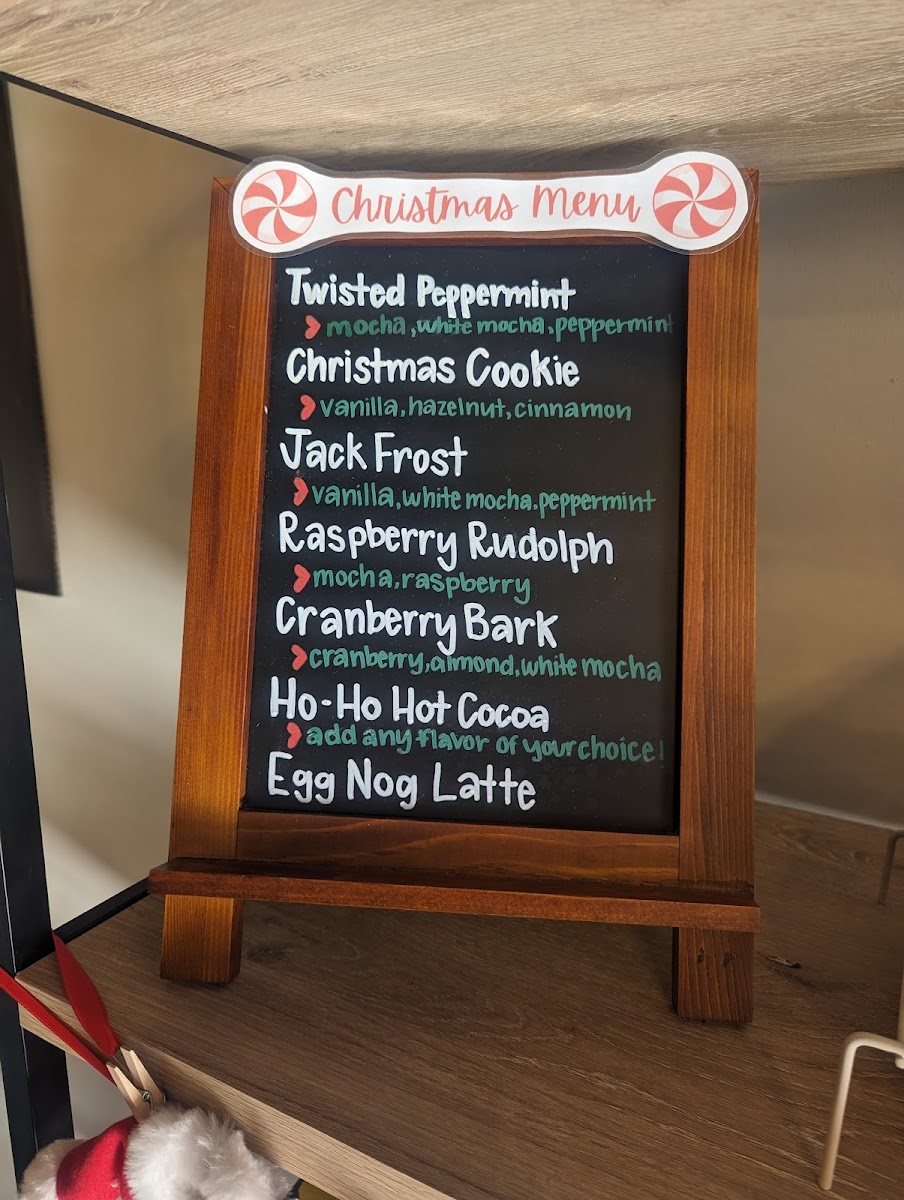 Christmas Menu
Twisted Peppermint
mocha, white mocha, peppermint
Christmas Cookie
vanilla, hazelnut, cinnamon
Jack Frost
vanilla, white mocha, peppermint
Raspberry Rudolph
mocha, raspberry
Cranberry Bark
cranberry, almond, white mocha
Ho-Ho Hot Cocoa
add any flavor of your choice!
Egg Nog Latte